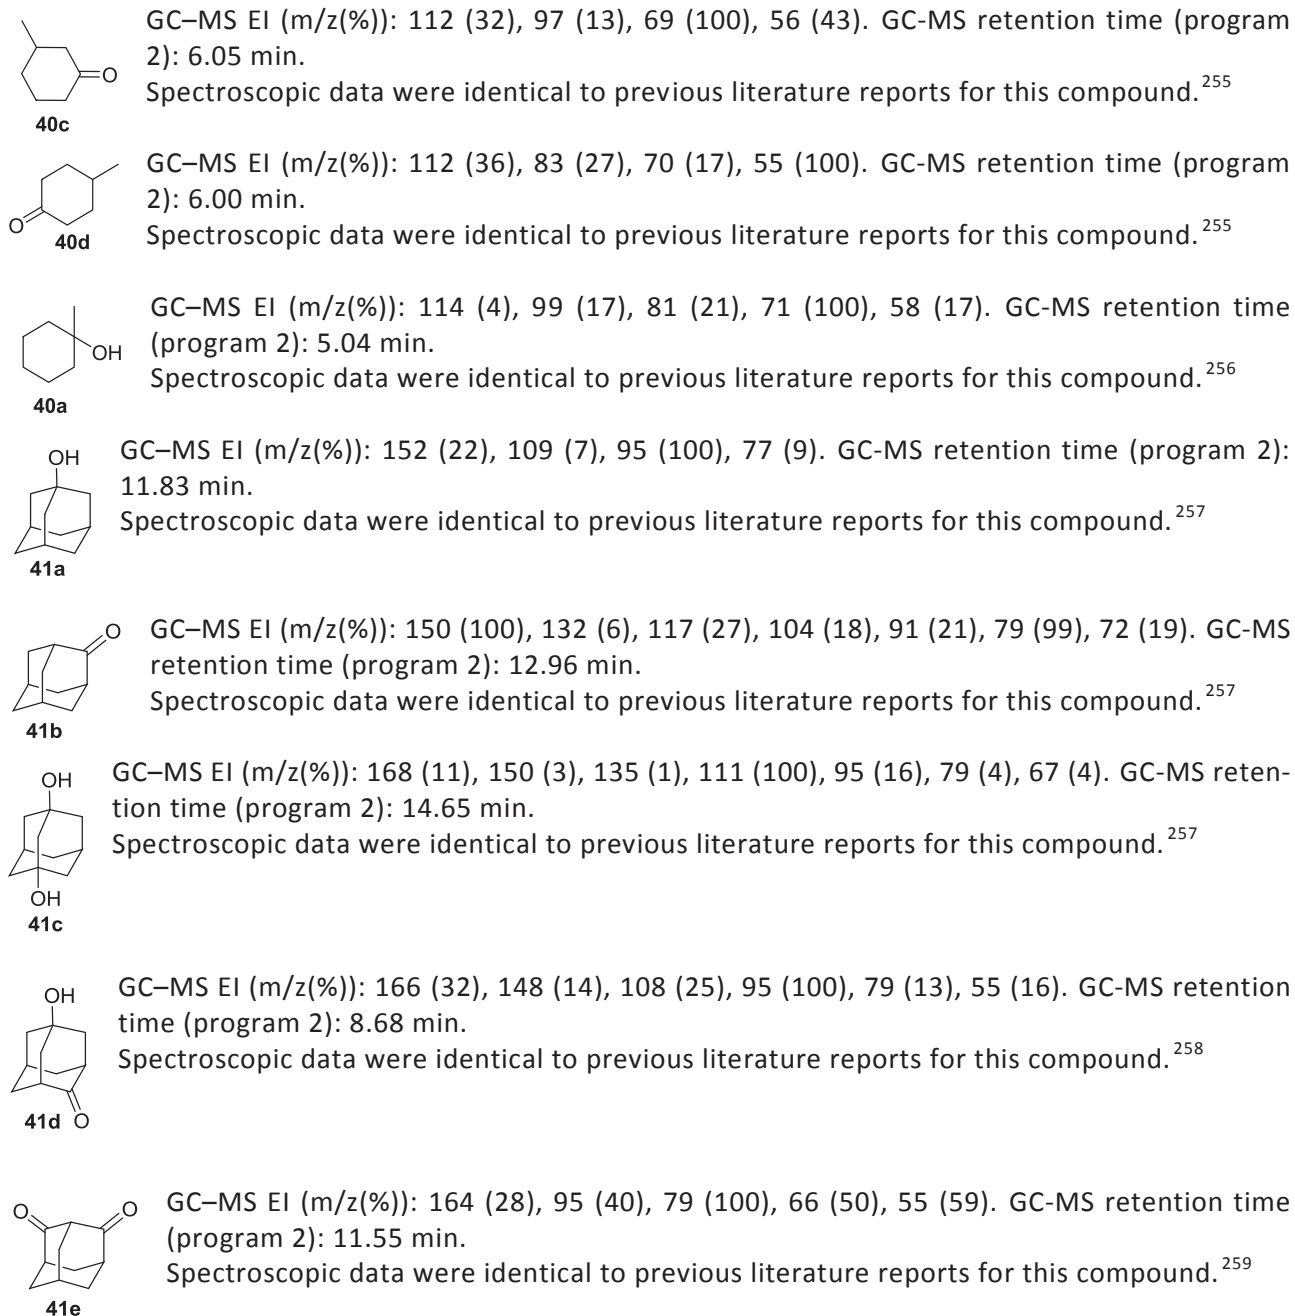 GC–MS EI (m/z(%)): 112 (32), 97 (13), 69 (100), 56 (43). GC-MS retention time (program
2): 6.05 min.
Spectroscopic data were identical to previous literature reports for this compound.255
O
40c
GC–MS EI (m/z(%)): 112 (36), 83 (27), 70 (17), 55 (100). GC-MS retention time (program
2): 6.00 min.
Spectroscopic data were identical to previous literature reports for this compound.255
O
40d
GC–MS EI (m/z(%)): 114 (4), 99 (17), 81 (21), 71 (100), 58 (17). GC-MS retention time
(program 2): 5.04 min.
Spectroscopic data were identical to previous literature reports for this compound.256
OH
40a
OH
GC–MS EI (m/z(%)): 152 (22), 109 (7), 95 (100), 77 (9). GC-MS retention time (program 2):
11.83 min.
Spectroscopic data were identical to previous literature reports for this compound.257
41a
O
GC–MS EI (m/z(%)): 150 (100), 132 (6), 117 (27), 104 (18), 91 (21), 79 (99), 72 (19). GC-MS
retention time (program 2): 12.96 min.
Spectroscopic data were identical to previous literature reports for this compound.257
41b
OH
GC–MS EI (m/z(%)): 168 (11), 150 (3), 135 (1), 111 (100), 95 (16), 79 (4), 67 (4). GC-MS reten-
tion time (program 2): 14.65 min.
Spectroscopic data were identical to previous literature reports for this compound.257
OH
41c
OH
GC–MS EI (m/z(%)): 166 (32), 148 (14), 108 (25), 95 (100), 79 (13), 55 (16). GC-MS retention
time (program 2): 8.68 min.
Spectroscopic data were identical to previous literature reports for this compound.258
41d O
O O
GC–MS EI (m/z(%)): 164 (28), 95 (40), 79 (100), 66 (50), 55 (59). GC-MS retention time
(program 2): 11.55 min.
Spectroscopic data were identical to previous literature reports for this compound.259
41e